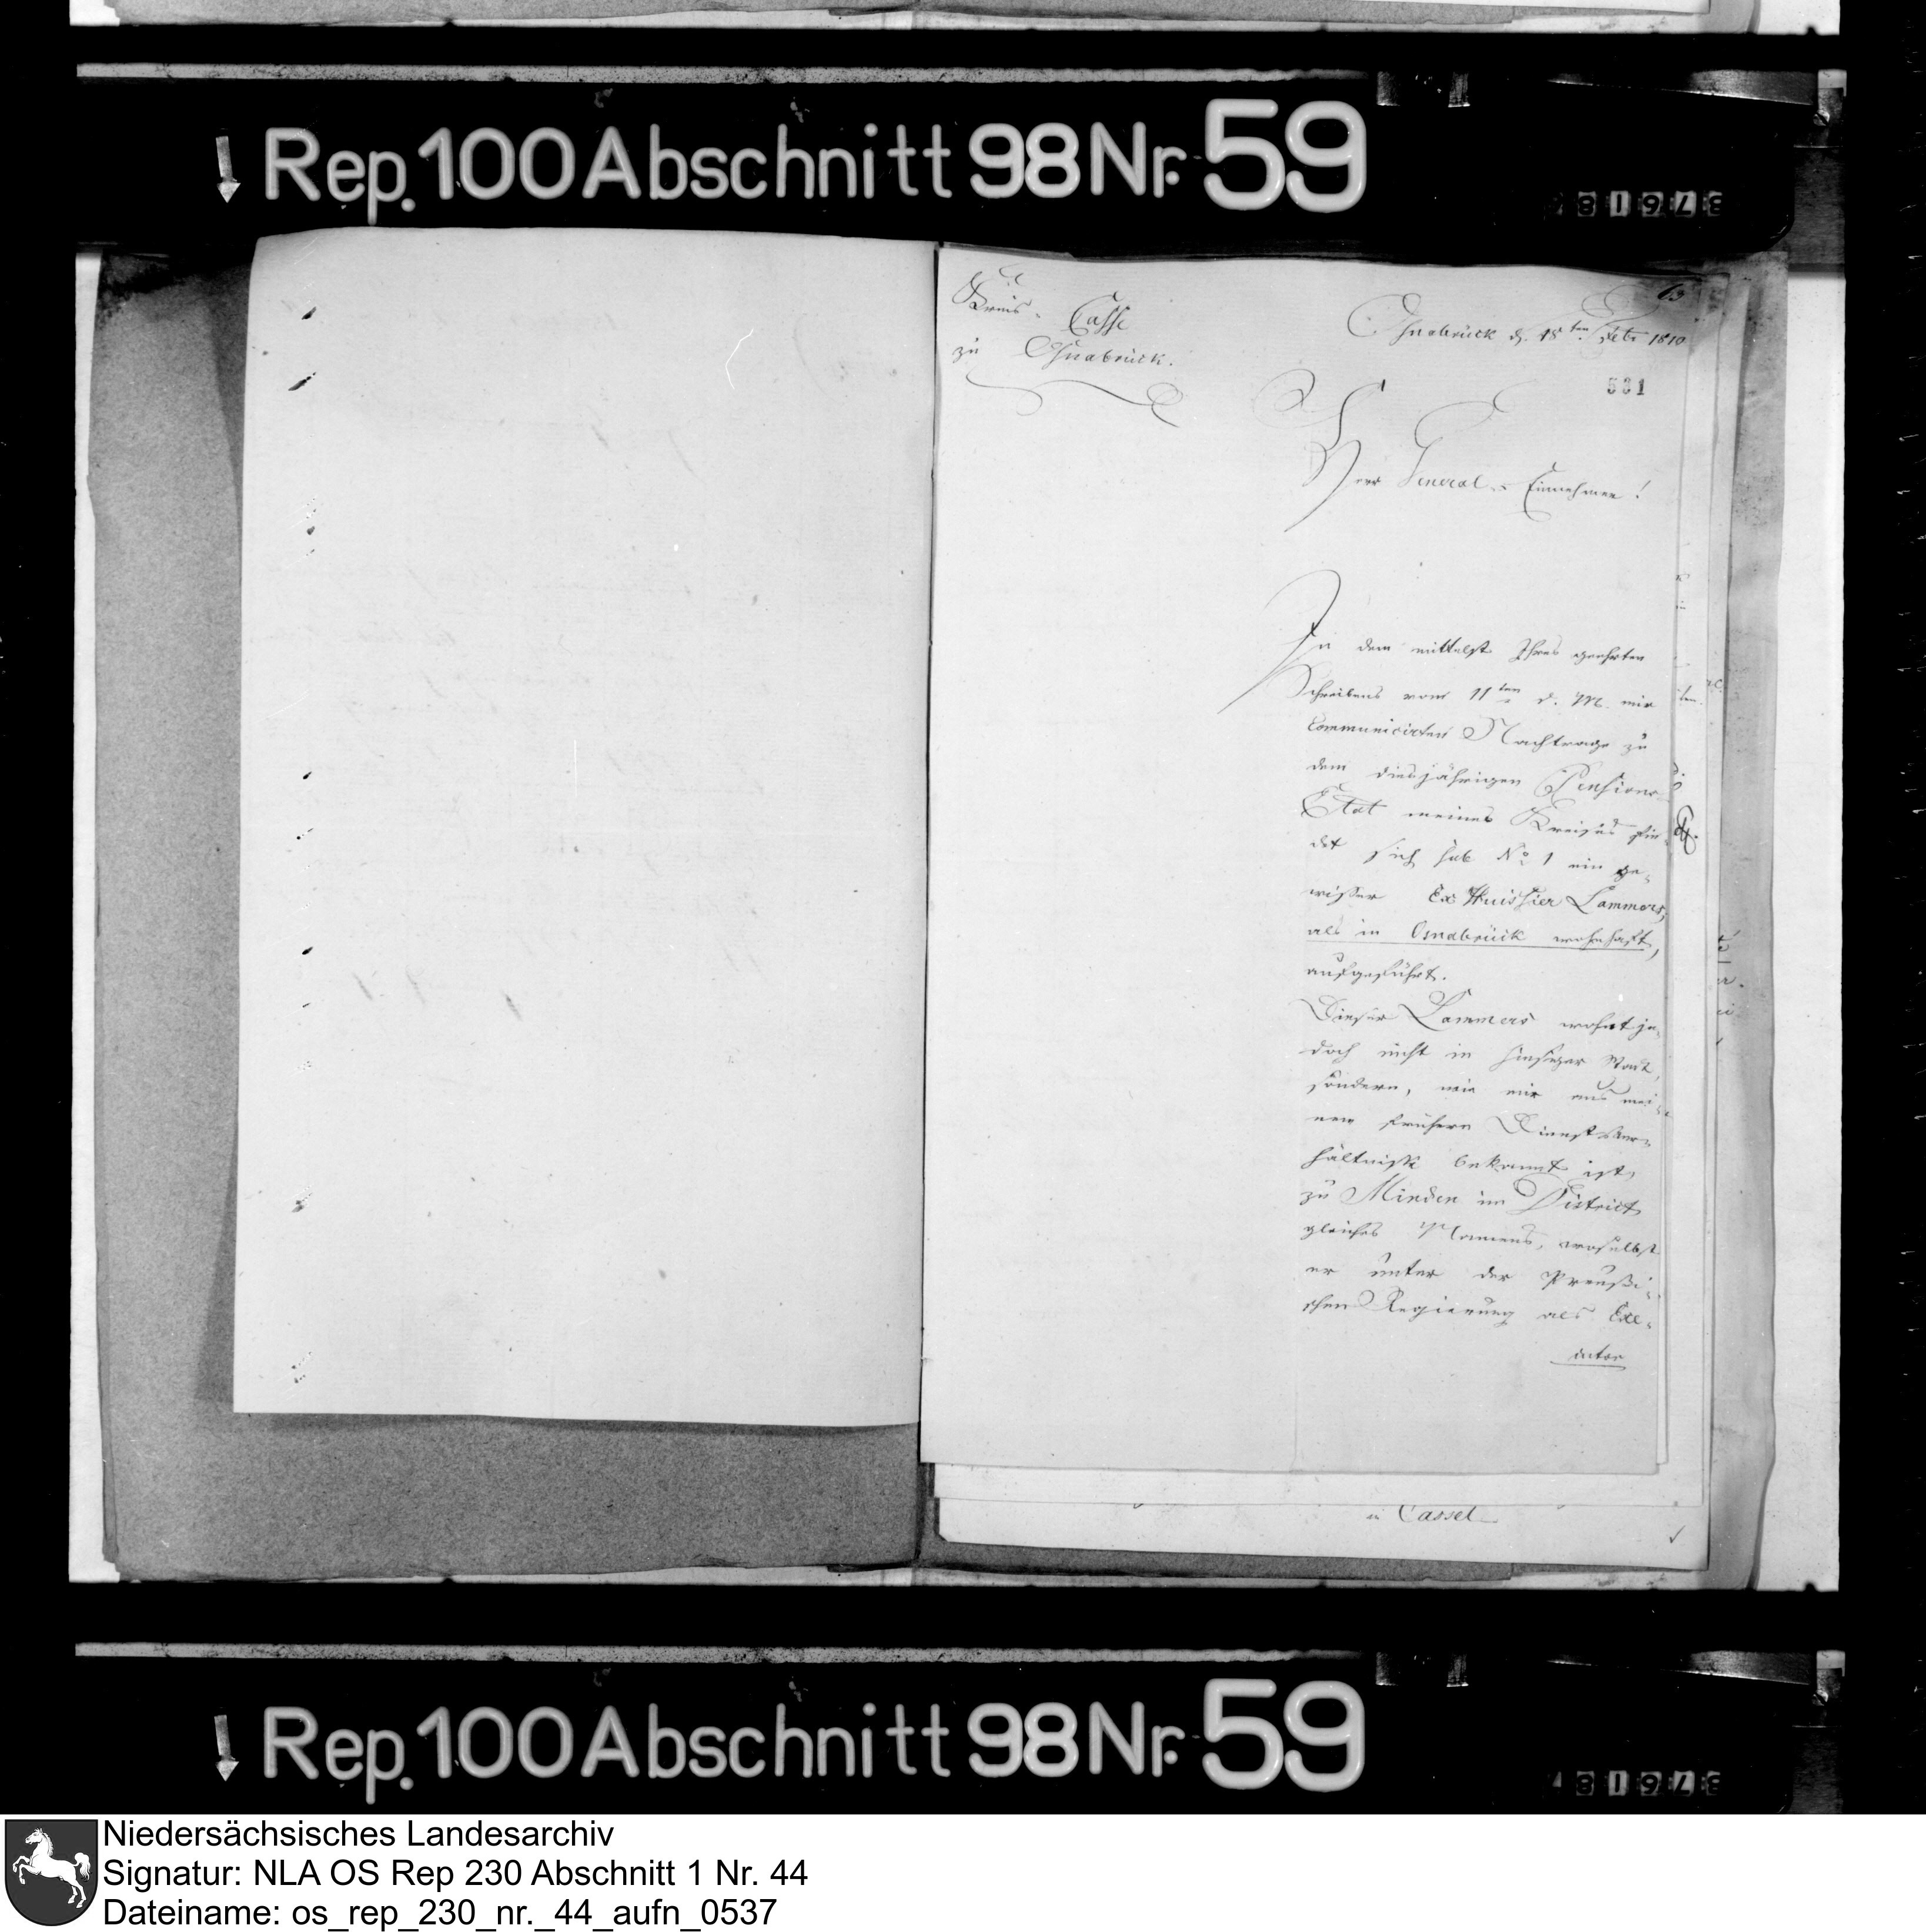 Rep. 100 Abschnitt 98 Nr. 59
Kreis-Casse
zu Osnabrück.
63
Osnabrück d. 18ten Febr 1810
531
Herr General-Einnehmer!
In dem mittelst Ihres geehrten
Schreibens vom 11ten d. M. mir
communicirten Nachtrage zu
dem diesjährigen Pensions-
Etat meines Kreises fin-
det sich sub No 1 ein ge-
wisser Ex Huissier Lammers,
als in Osnabrück wohnhaft,
aufgeführt.
Dieser Lammers wohnt je-
doch nicht in hiesiger Stadt,
sondern, wie mir aus mei-
nem frühern Dienstver-
hältniße bekannt ist,
zu Minden im District
gleiches Namens, woselbst
er unter der Preußi-
schen Regierung als Exe-
cutor
in Cassel
Rep. 100 Abschnitt 98 Nr. 59
Niedersächsisches Landesarchiv
Signatur: NLA OS Rep 230 Abschnitt 1 Nr. 44
Dateiname: os_rep_230_nr._44_aufn_0537